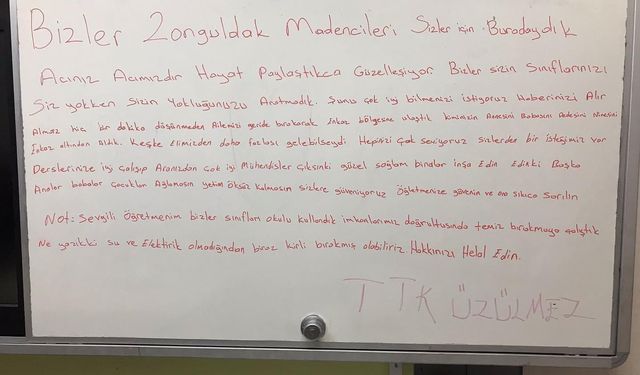 Bizler Zonguldak Madencileri Sizler için Buradaydık
Acınız Acımızdır Hayat Paylaştıkca Güzelleşiyor Bizler sizin Sınıflarınızı
Siz yokken Sizin Yokluğunuzu Aratmadık. Şunu çok iyi bilmenizi istiyoruz Haberinizi Alır
Almaz hiç bir dakika düşünmeden Ailemizi geride bırakarak Enkaz bölgesine ulaştık kiminizin Annesini Babasını Dedesini Ninesini
Enkaz altından Aldık. Keşke Elimizden daha fazlası gelebilseydi Hepinizi Çok seviyoruz sizlerden bir isteğimiz var
Derslerinize iyi çalışıp Aranızdan Çok iyi Mühendisler Çıksınki güzel sağlam binalar inşa Edin Edinki Başka
Analar babalar çocuklar Ağlamasın yetim Öksüz kalmasın sizlere güveniyoruz Öğretmenize güvenin ve ona Sıkıca Sarılın
Not: Sevgili Öğretmenim bizler sınıfları okulu kullandık imkanlarımız doğrultusunda temiz bırakmaya çalıştık
Ne yazıkki su ve Elektirik olmadığından biraz kirli bırakmış olabiliriz. Hakkınızı Helal Edin.
TTK ÜZÜLMEZ